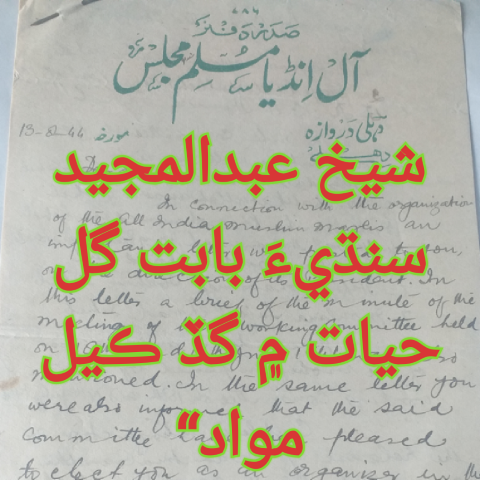 ۷۸۶
صدر دفتر
آل انڈیا مسلم مجلس
دہلی دروازہ
دھلی
مورخہ 13-8-44
شيخ عبدالمجيد
In connection with the organization
of the All India Muslim Majlis an
سنڌيءَ بابت گل
this letter a brief of the minute of the
meeting of working Committee held
حيات ۾ گڏ ڪيل
mentioned. In the same letter you
were also informed that the said
committee pleased
مواد“
to elect you as an organizer in the